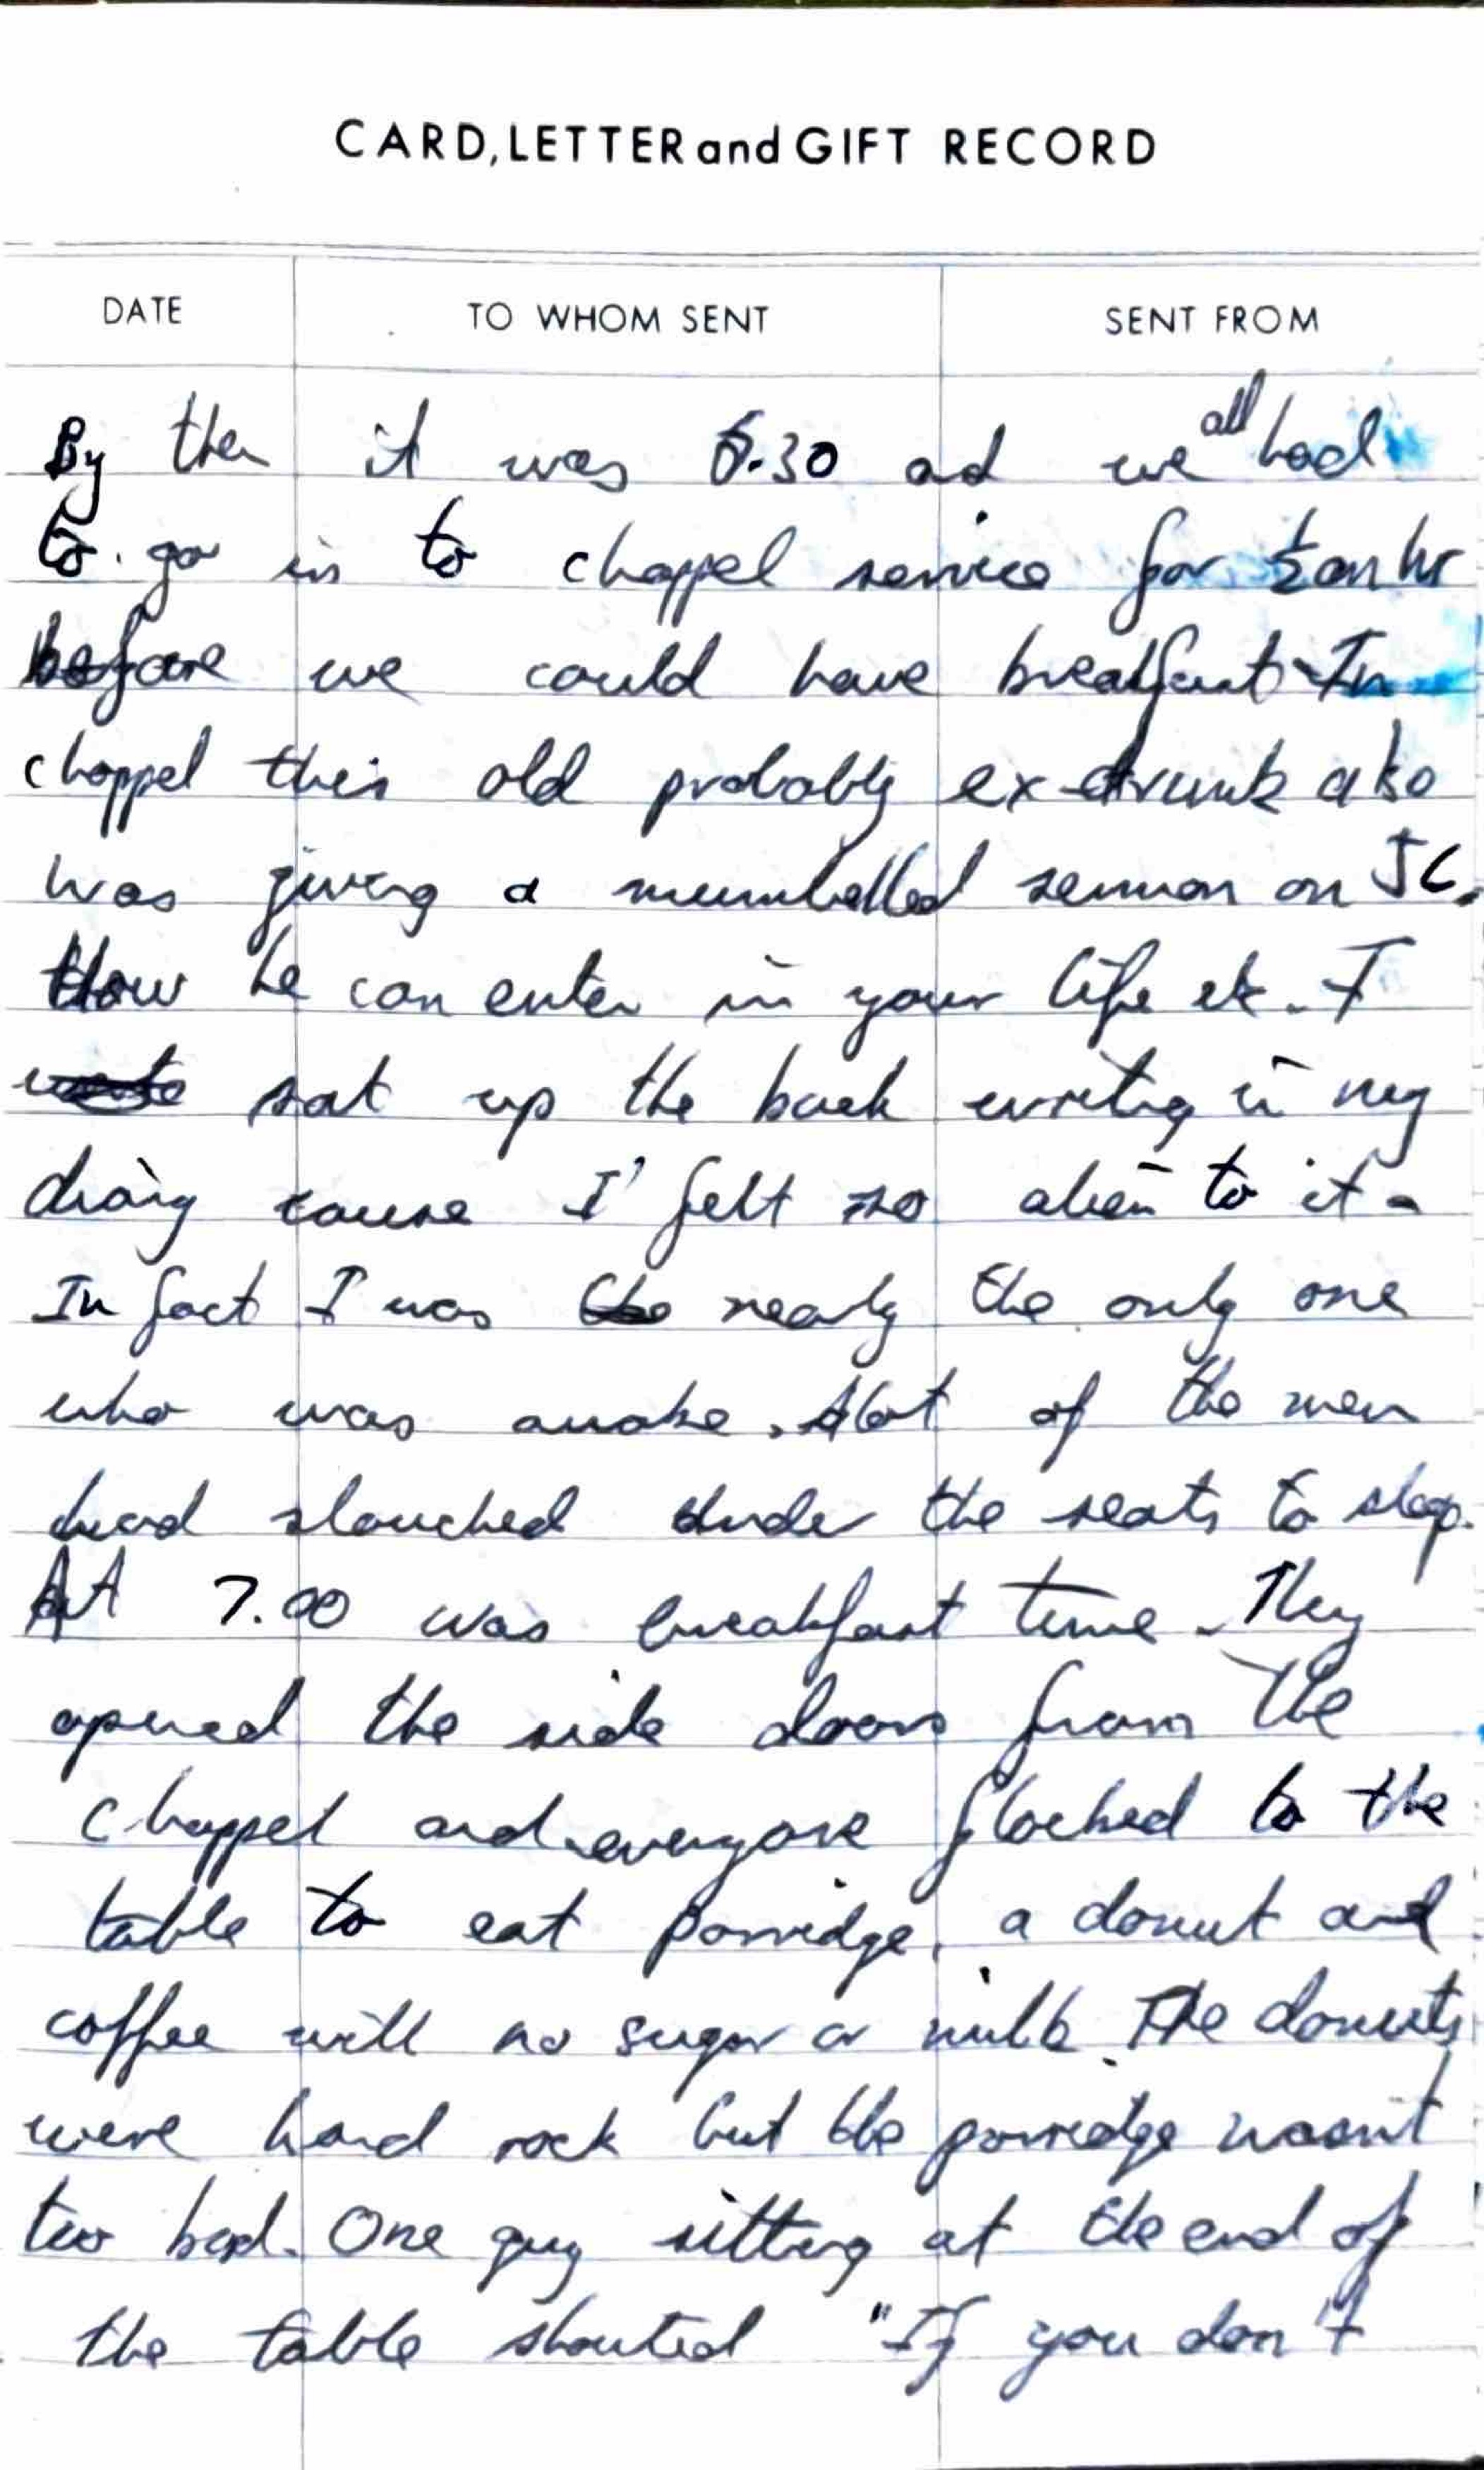 CARD, LETTER and GIFT RECORD
DATE TO WHOM SENT SENT FROM
By then it was 6.30 and we all had
to go in to chappel service for ½ an hr
before we could have breakfast. In
chappel this old probably ex-drunk also
was giving a mumbelled sermon on JC.
How he can enter in your life etc. I
sat up the back writing in my
diary cause I felt so alien to it.
In fact I was nearly the only one
who was awake. Alot of the men
had slouched under the seats to sleep.
At 7.00 was breakfast time. They
opened the side doors from the
chappel and everyone flocked to the
table to eat porridge, a donut and
coffee with no sugar or milk. The donuts
were hard rock but the porredge wasn't
too bad. One guy sitting at the end of
the table shouted "If you don't